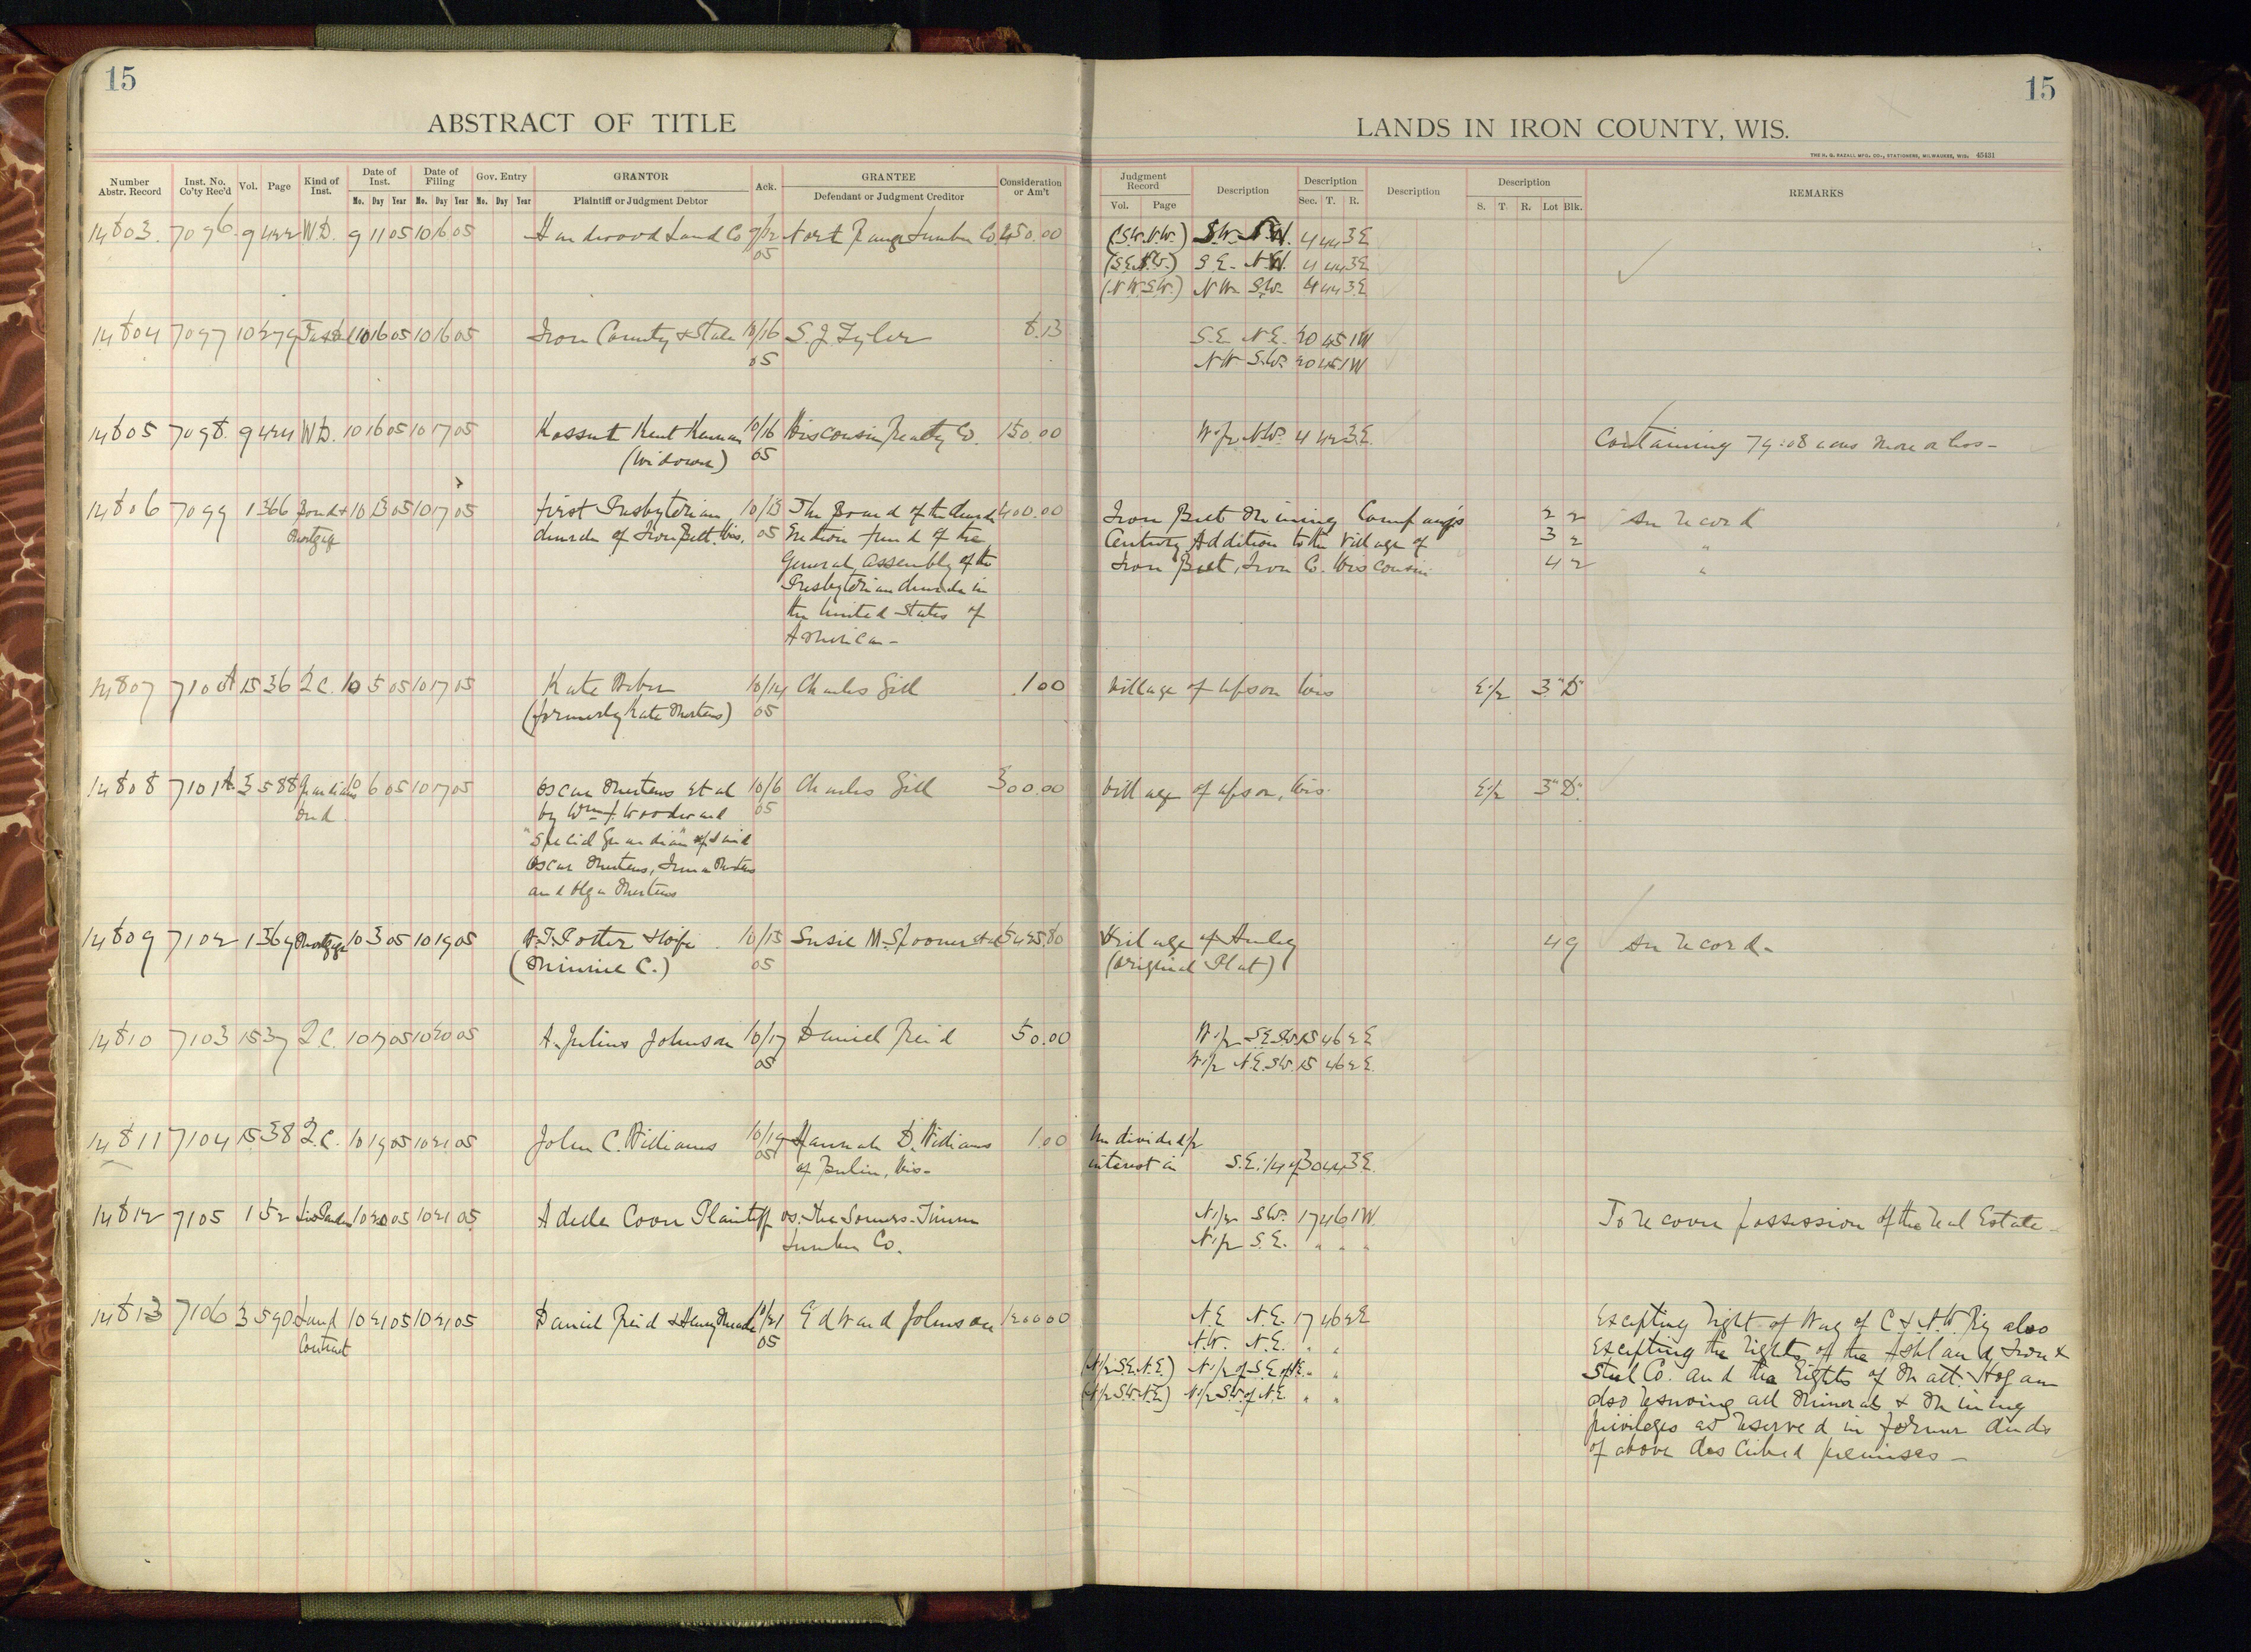 15
ABSTRACT OF TITLE
15
LANDS IN IRON COUNTY, WIS.
THE H. G. RAZALL MFG. CO., STATIONERS, MILWAUKEE, WIS. 45431
Number Abstr. Record Inst. No. Co'ty Rec'd Vol. Page Kind of Inst. Date of Inst. Mo. Day Year Date of Filing Mo. Day Year Gov. Entry Mo. Day Year GRANTOR Plaintiff or Judgment Debtor Ack. GRANTEE Defendant or Judgment Creditor Consideration or Am't Judgment Record Vol. Page Description Description Sec. T. R. Description Description S. T. R. Lot Blk. REMARKS
14803. 7096. 9 422 W.D. 9 11 05 10 16 05 Hardwood Land Co 9/12 North Range Lumber Co 450.00 (S.W.N.W.) S.W. N.W. 4 44 3E
05 (S.E.N.W.) S.E. N.W. 4 44 3E
(N.W.S.W.) N.W. S.W. 4 44 3E
14804 7097 10 279 10 16 05 10 16 05 Iron County & State 10/16 S. J. Tyler 8.13 S.E. N.E. 20 45 1W
05 N.W. S.W. 20 45 1W
14805 7098. 9 424 W.D. 10 16 05 10 17 05 Kossut Kent 10/16 Wisconsin Realty Co. 150.00 W.1/2 N.W. 4 42 3E. Containing 79.08 acres more or less-
(Widower) 05
14806 7099 1 366 Bond & 10 13 05 10 17 05 First Presbyterian 10/13 The Board of the Church 400.00 Iron Belt Mining Company's 2 2 An record
Mortgage church of Iron Belt, Wis. 05 Erection fund of the Century Addition to the Village of 3 2 "
General Assembly of the Iron Belt, Iron Co. Wisconsin 4 2 "
Presbyterian church in
the United States of
American-
14807 7100A 15 36 Q.C. 10 5 05 10 17 05 Kate 10/14 Charles Gill 1.00 Village of Upson Wis E.1/2 3 "D"
(formerly Kate Mertens) 05
14808 7101A. 3 588 Guardians 10 6 05 10 17 05 Oscar Mertens et al 10/6 Charles Gill 300.00 Village of Upson, Wis. E.1/2 3 "D".
Deed by Wm. J. Woodward 05
"Special Guardian" of said
Oscar Mertens, Irma Mertens
and Olga Mertens
14809 7102 1 369 Mortgage 10 3 05 10 19 05 Potter & Wife 10/15 Susie M. Spooner et al 5425.80 Village of Hurley 4 9 An record-
(Minnie C.) 05 (Original Plat)
14810 7103 15 37 Q.C. 10 17 05 10 20 05 A. Julius Johnson 10/17 Daniel Reid 50.00 W.1/2 S.E.S.W. 15 46 2E
05 W.1/2 N.E.S.W. 15 46 2E.
14811 7104 15 38 Q.C. 10 19 05 10 21 05 John C. Williams 10/19 Hannah D. Williams 1.00 Undivided 1/2
05 of Berlin, Wis- interest in S.E.1/4 of 30 44 3E.
14812 7105 1 52 Lis Pendens 10 20 05 10 21 05 Adella Coon Plaintiff vs. The Somers-Timm N.1/2 S.W. 17 46 1W. To recover possession of the real Estate-
Lumber Co. N.1/2 S.E. " " "
14813 7106 3 590 Land 10 21 05 10 21 05 Daniel Reid & Henry Meade 10/21 Edward Johnson 1200.00 N.E. N.E. 17 46 2E Excepting right of Way of C & N.W. Ry also
Contract 05 N.W. N.E. " " Excepting the rights of the Ashland Iron &
(N.1/2 S.E.N.E.) N.1/2 of S.E. of N.E. " " Steel Co. and the Rights of Matt. Hogan
(N.1/2 S.W.N.E.) N.1/2 S.W. of N.E. " " also reserving all Minerals & Mining
privileges as reserved in former deeds
of above described premises-